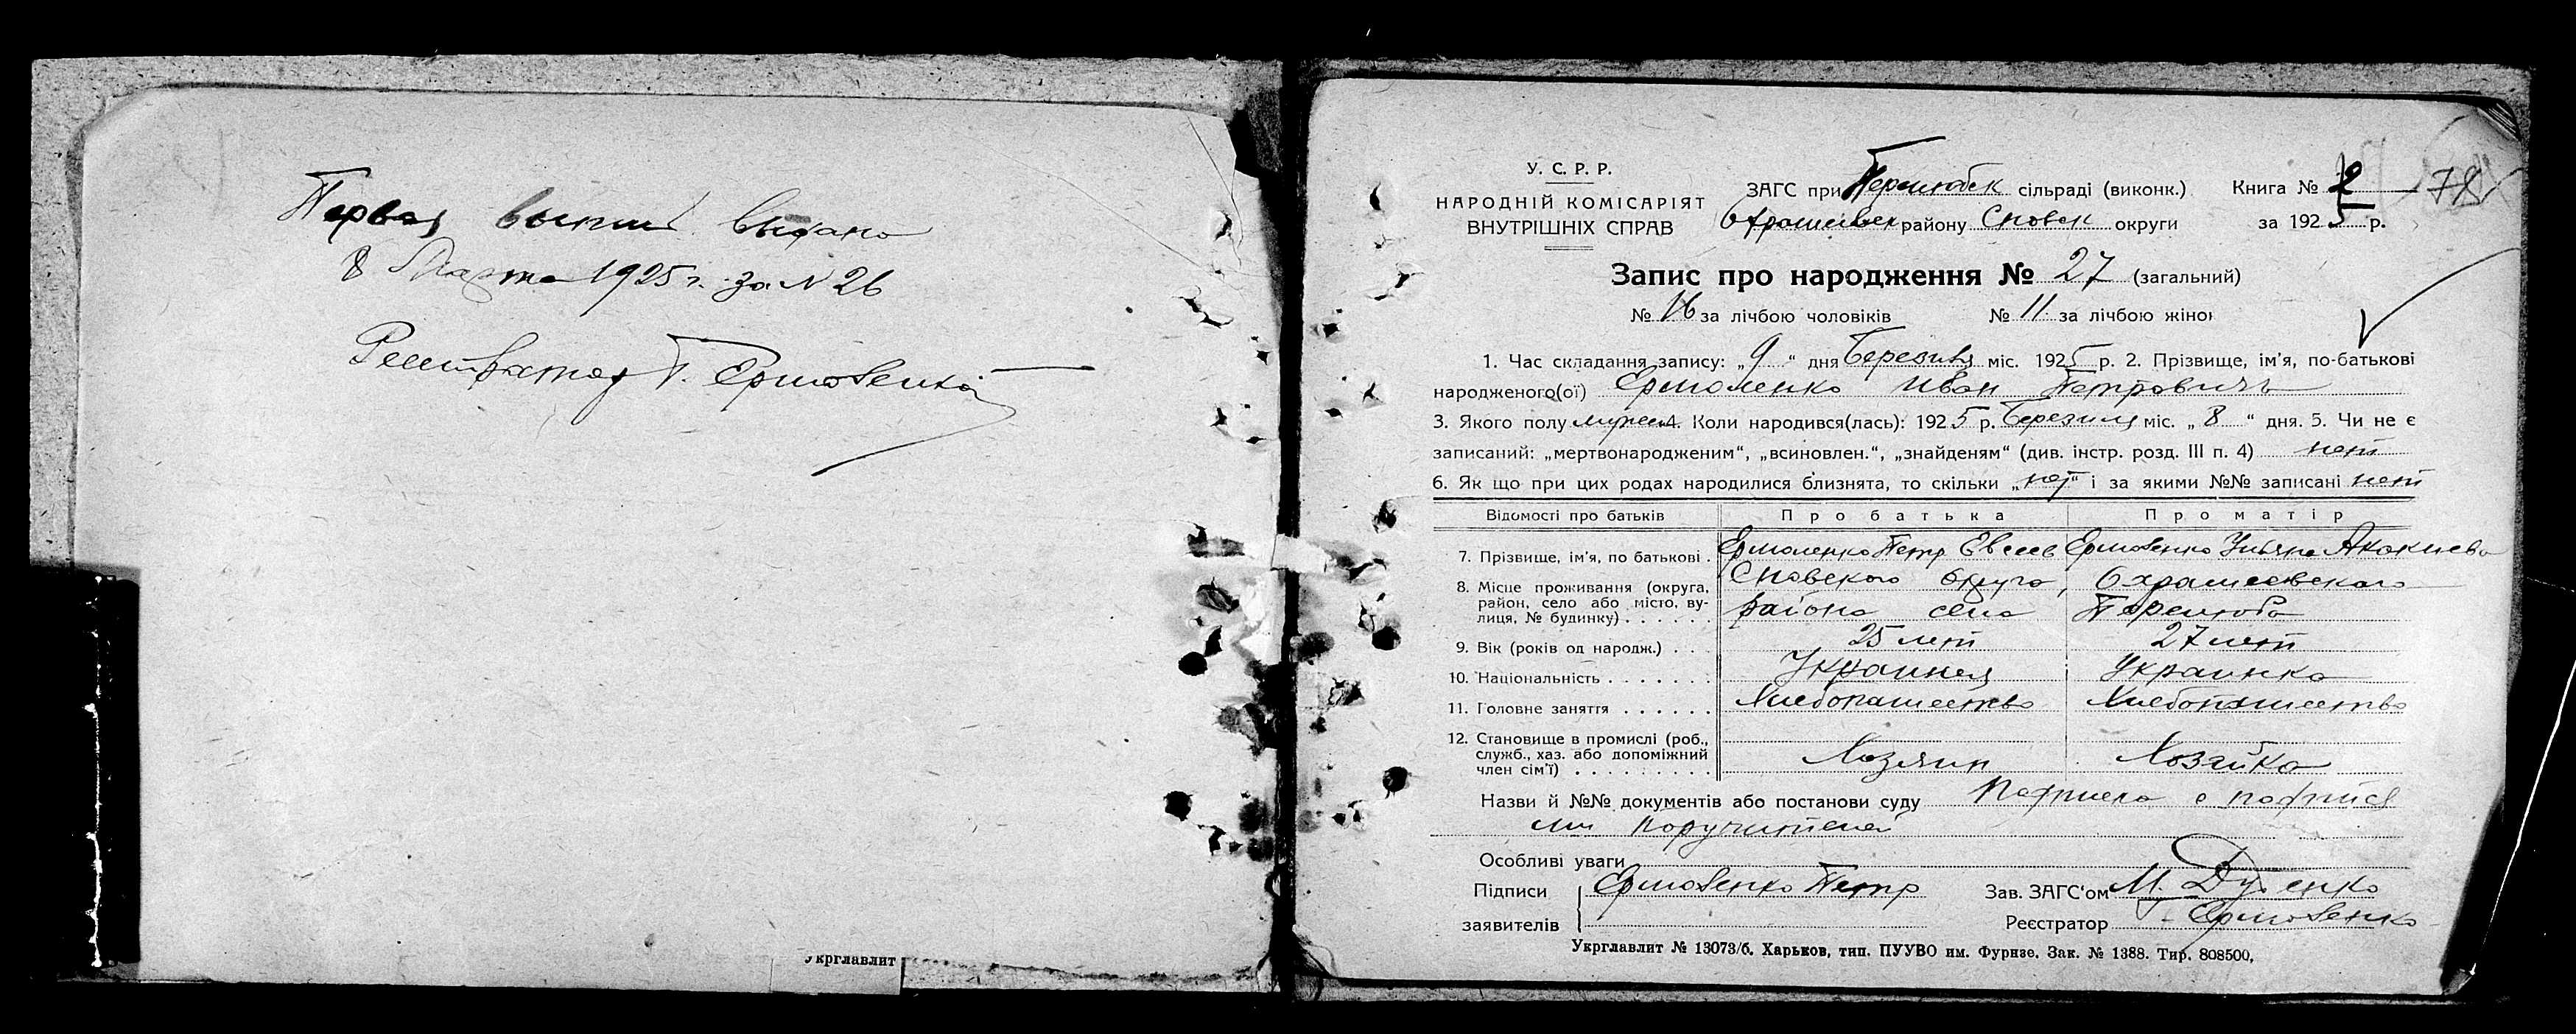 Первая выпис. выдано
8 Марта 1925 г. за № 26
Регистратор Г. Ермоленко
Укрглавлит
У. С. Р. Р.
НАРОДНІЙ КОМІСАРІЯТ
ВНУТРІШНІХ СПРАВ
ЗАГС при Перелюбск сільраді (виконк.)
района Сновск округи
Книга № 2
78
за 1925 р.
Запис про народження № 27 (загальний)
№ 16 за лічбою чоловіків № 11 за лічбою жінок
1. Час складання запису: „9“ дня Березиля міс. 1925 р. 2. Прізвище, ім'я, по-батькові
народженого(ої) Ермоленко Иван Петровичъ
3. Якого полу мужск 4. Коли народився(лась): 1925 р. Березиля міс. „8“ дня. 5. Чи не є
записаний: „мертвонародженим“, „всиновлен.“, „знайденям“ (див. інстр. розд. III п. 4) нет
6. Як що при цих родах народилися близнята, то скільки „нет“ і за якими №№ записані нет
Відомості про батьків Про батька Про матір
7. Прізвище, ім'я, по батькові . Ермоленко Петр Евсеев Ермоленко Ульяна Акакиева
8. Місце проживання (округа, Сновского округа, Охрамеевского
район, село або місто, ву- района села Перелюба
лиця, № будинку) . . . . . .
9. Вік (років од народж.) . . . 25 лет 27 лет
10. Національність . . . . . . . Украинец Украинка
11. Головне заняття . . . . . . Хлебопашество Хлебопашество
12. Становище в промислі (роб.,
служб., хаз. або допоміжний Хозяин Хозяйка
член сім'ї) . . . . . . . . .
Назви й №№ документів або постанови суду Подписка с подпися
ми поручителей
Особливі уваги
Підписи Ермоленко Петр Зав. ЗАГС'ом М. Дуденко
заявителів Реєстратор Г. Ермоленко
Укрглавлит № 13073/б. Харьков, тип. ПУУВО им. Фрунзе. Зак. № 1388. Тир. 808500,